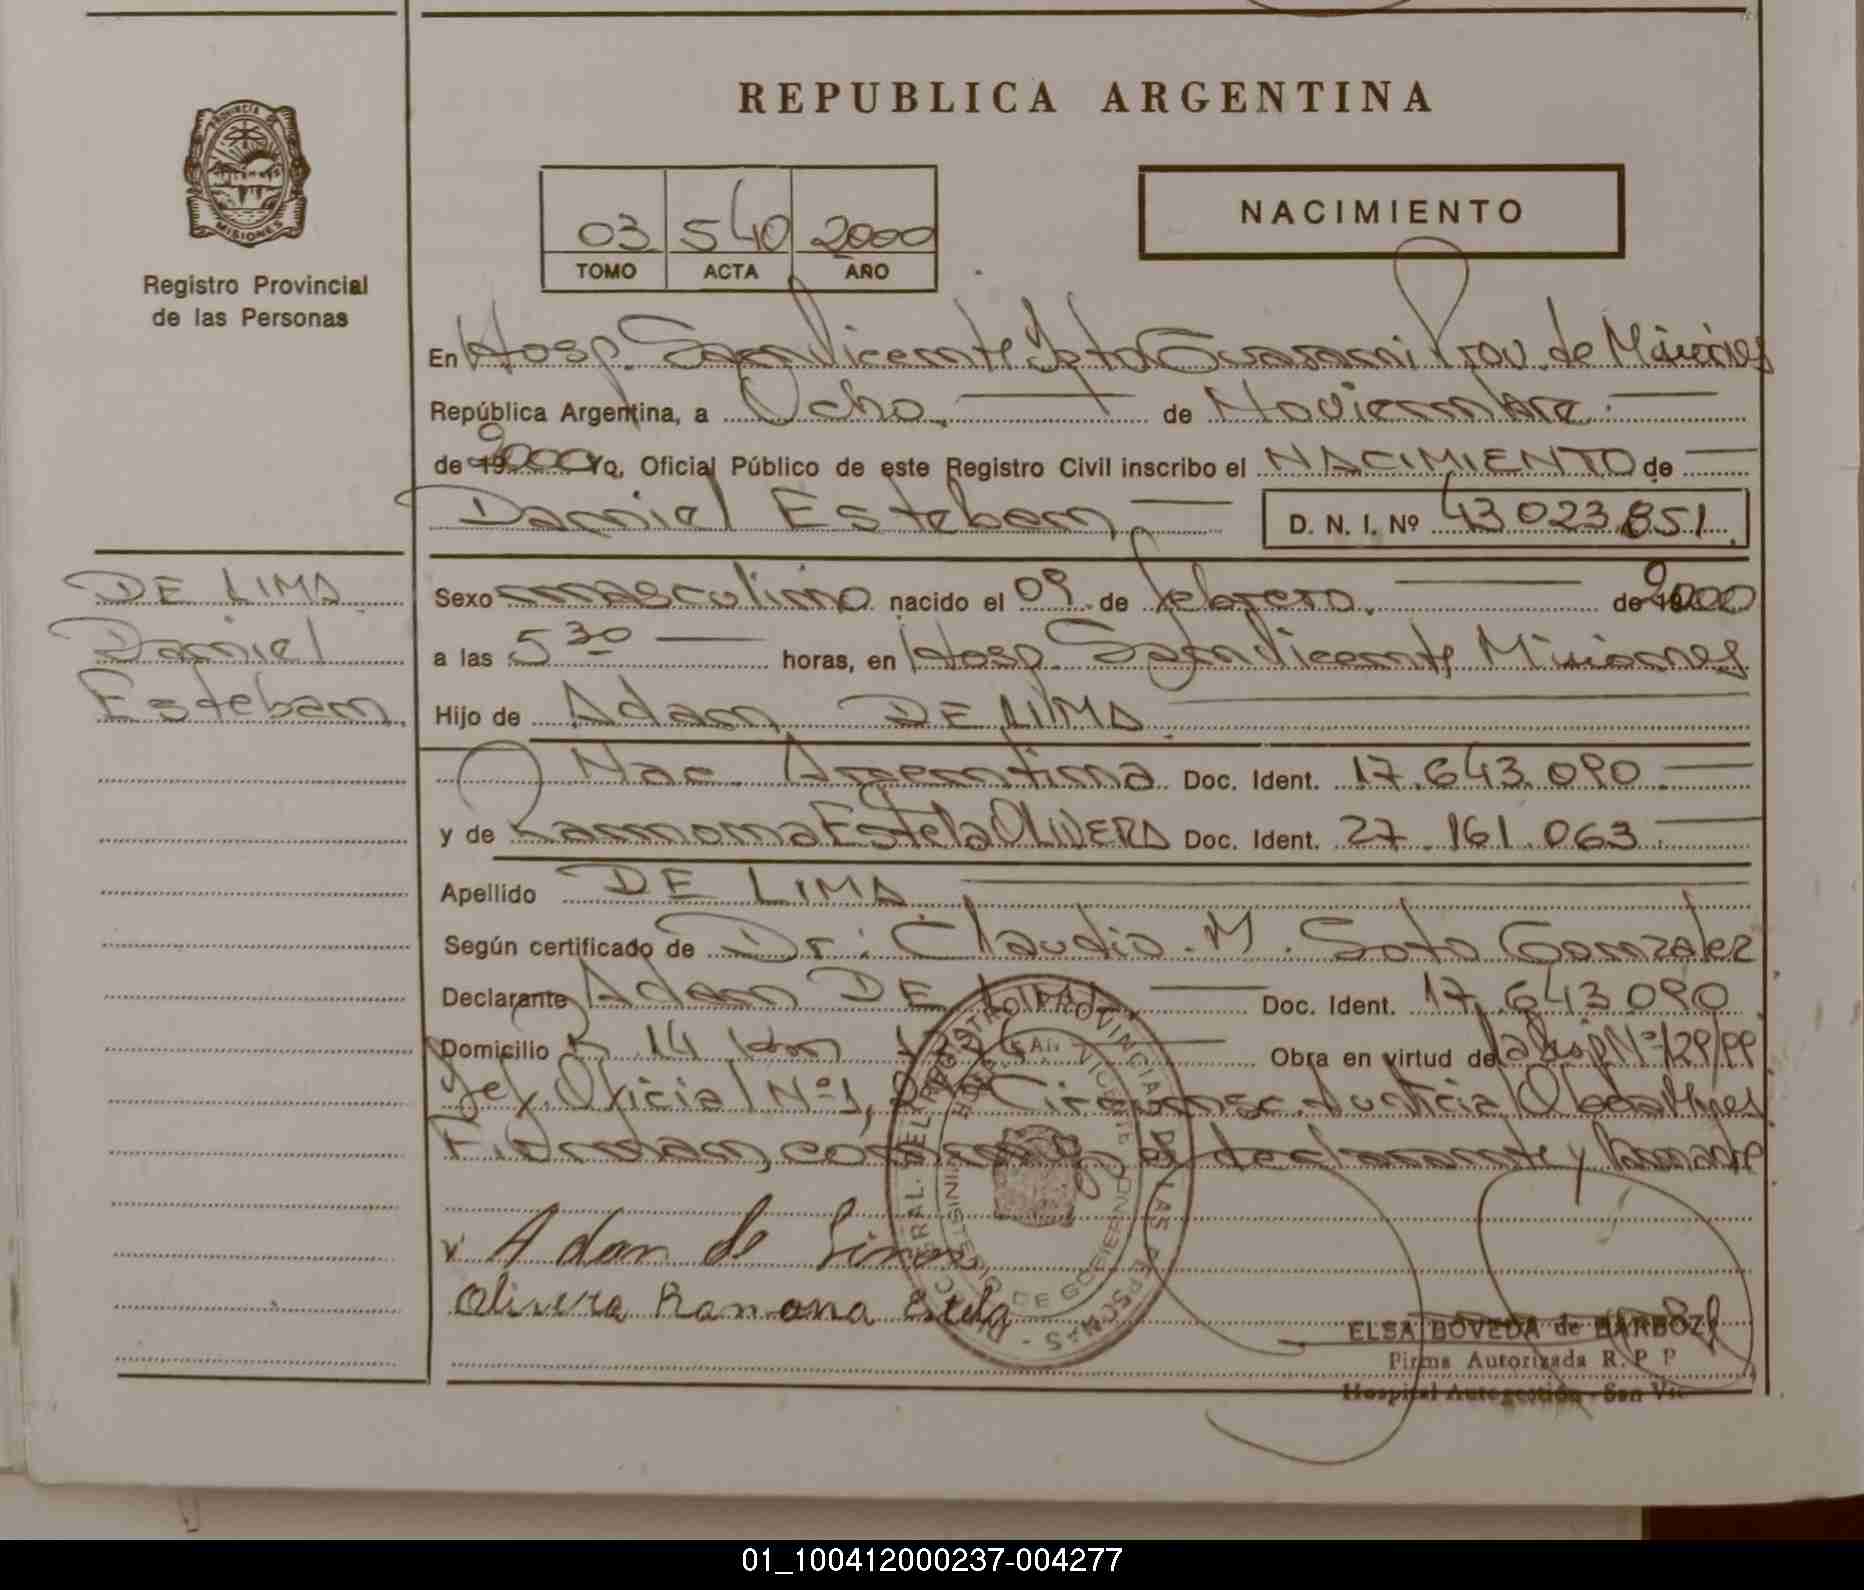 REPUBLICA ARGENTINA
PROVINCIA DE
MISIONES
Registro Provincial
de las Personas
03 540 2000
TOMO ACTA AÑO
NACIMIENTO
En Hosp. San Vicente Dpto Guarani Prov. de Misiones
República Argentina, a Ocho. de Noviembre.
de 19 2000 Yo, Oficial Público de este Registro Civil inscribo el NACIMIENTO de
Daniel Esteban. D. N. I. Nº 43023851.
DE LIMA
Daniel
Esteban.
Sexo masculino nacido el 09 de febrero. de 19 2000
a las 5 30 horas, en Hosp. San Vicente Misiones
Hijo de Adan DE LIMA.
Nac. Argentina Doc. Ident. 17.643.090.
y de Ramona Estela OLIVERA Doc. Ident. 27.161.063.
Apellido DE LIMA.
Según certificado de Dr: Claudio. M. Soto Gonzalez
Declarante Adan DE LIMA Doc. Ident. 17.643.090
Domicilio R 14 Km Obra en virtud de Nº 129/99
Oficial Nº 1, Circunsc. Judicial Oberá Mnes
Firman, conmigo el declarante y
Adan de Lima
Olivera Ramona Estela
GRAL. DEL REGISTRO PROVINCIAL DE LAS PERSONAS
SAN VICENTE
MINISTERIO DE GOBIERNO
ELSA BOVEDA de BARBOZA
Firma Autorizada R. P. P
Hospital Autogestión - San Vic
01_100412000237-004277